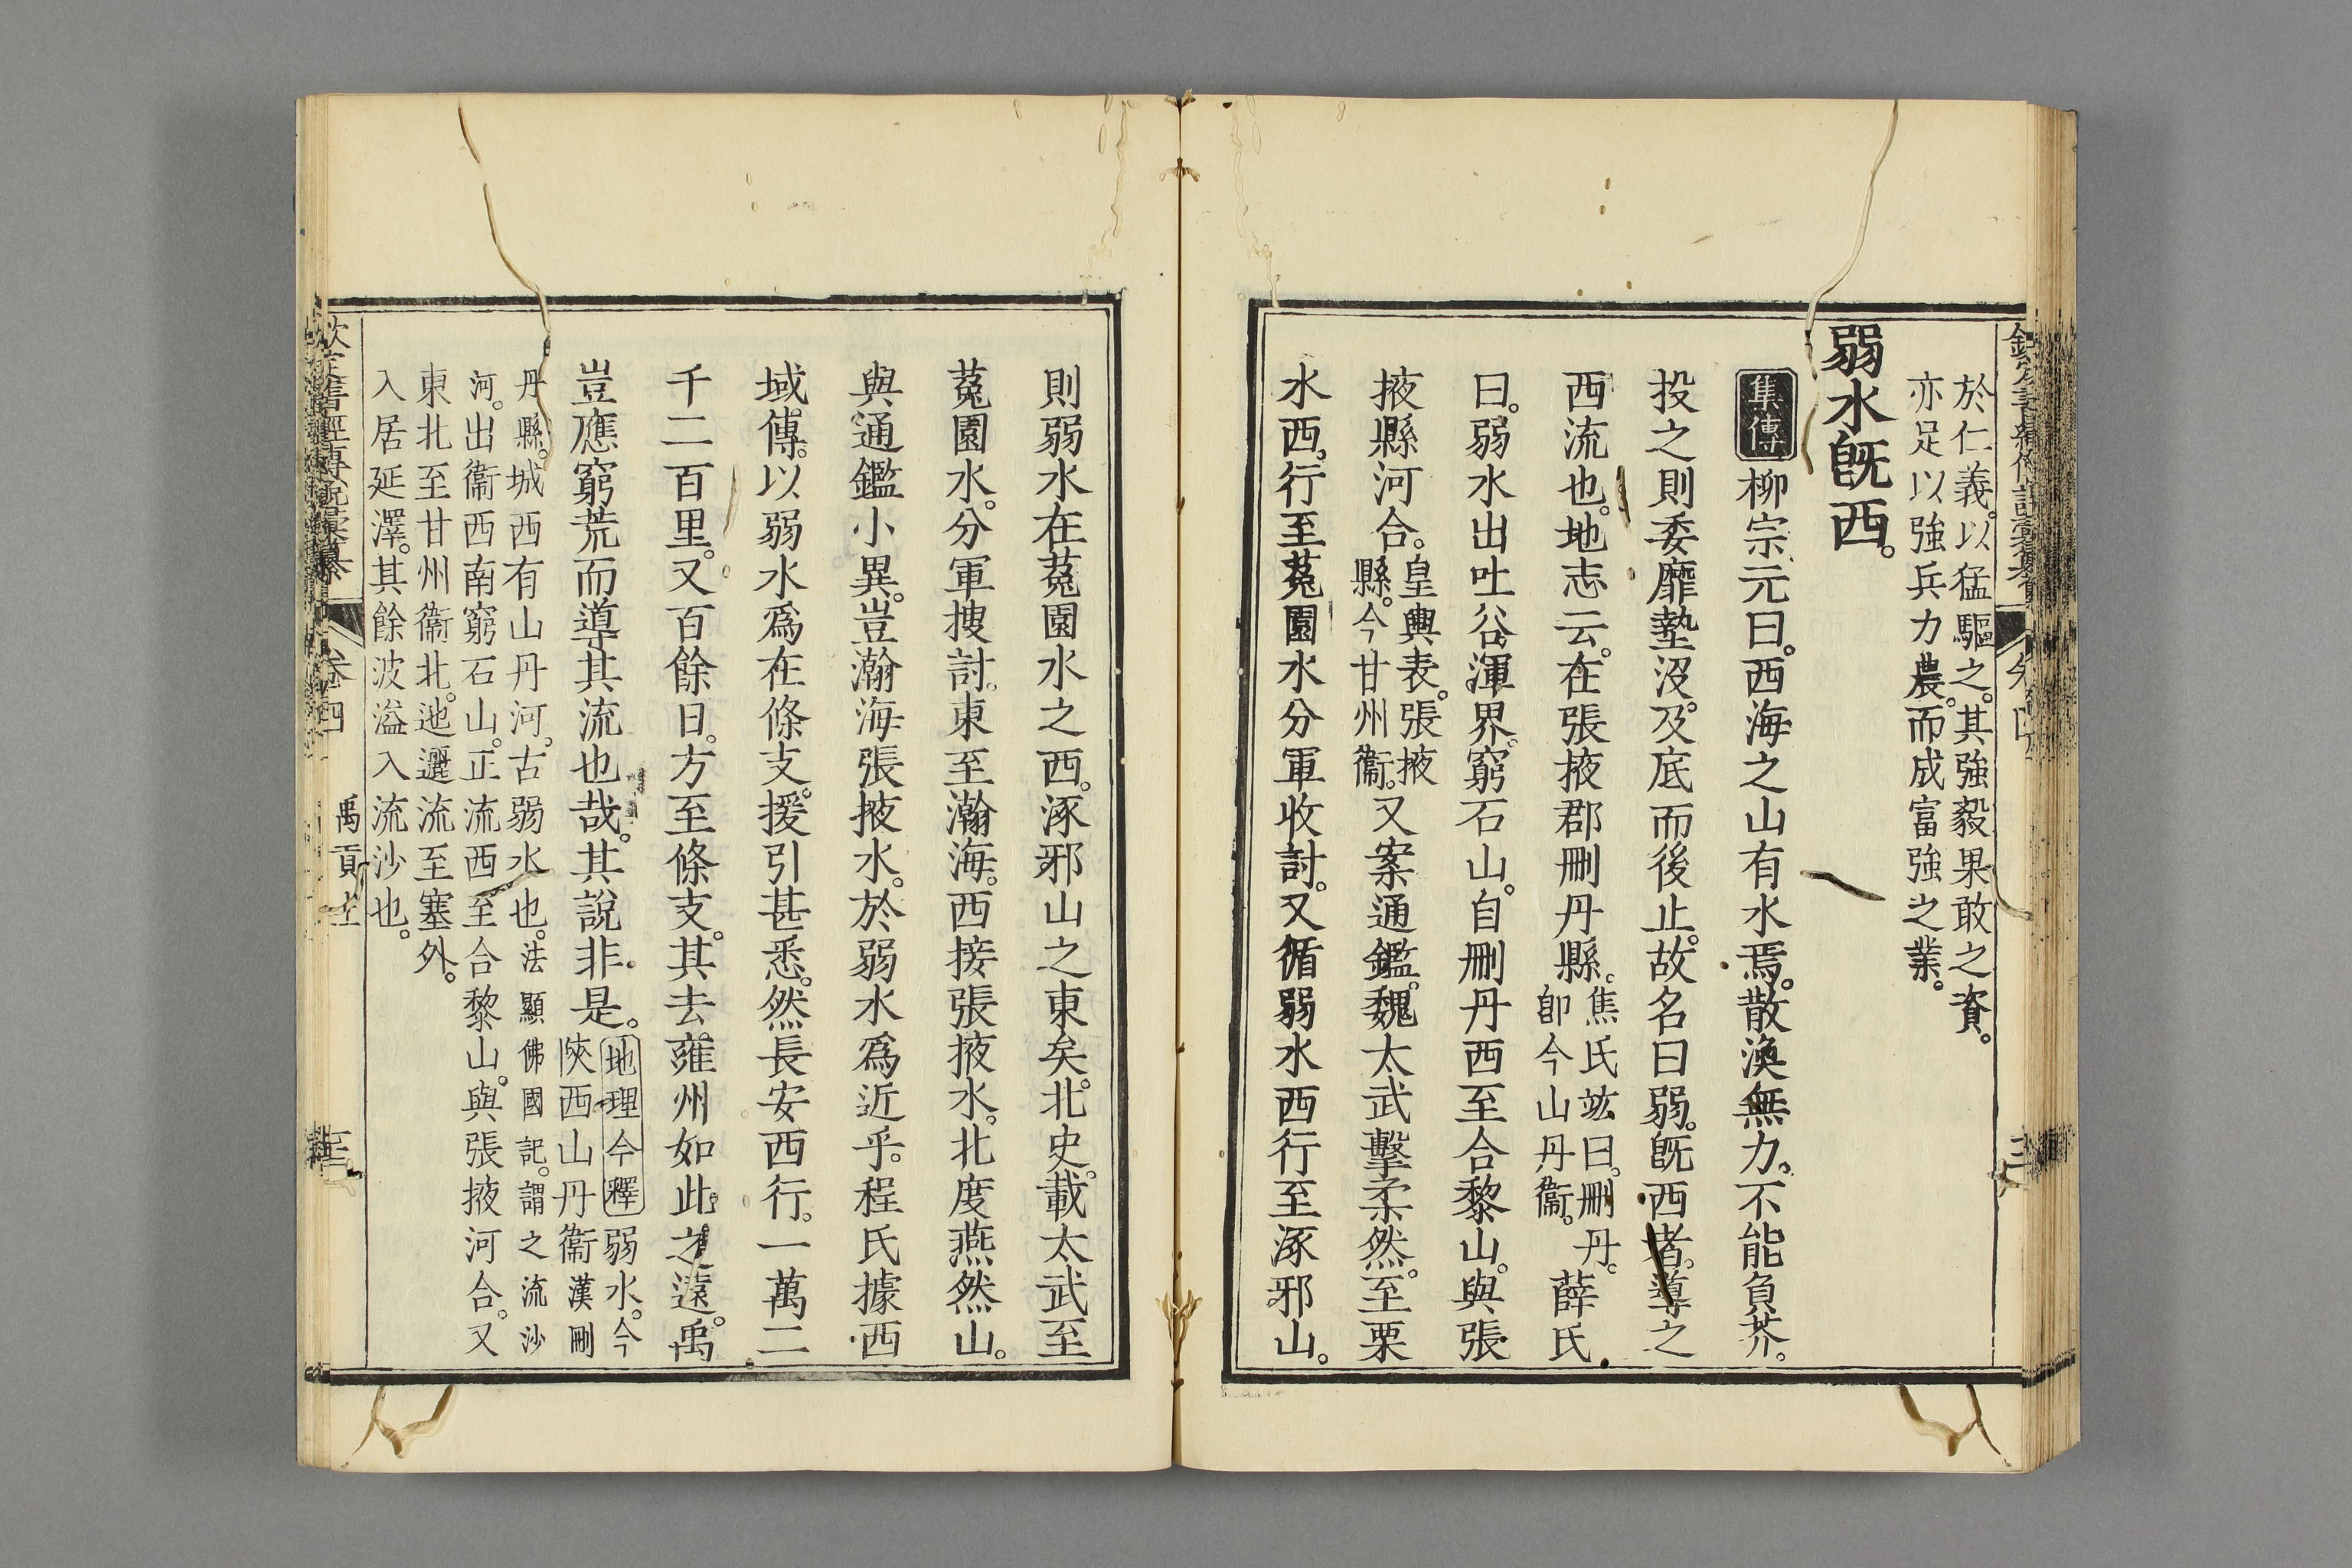 於仁義。以猛驅之。其強毅果敢之資。
亦足以強兵力農。而成富強之業。
弱水旣西。
集傳柳宗元曰。西海之山有水焉。散渙無力。不能負芥。
投之則委靡墊沒。及底而後止。故名曰弱。旣西者。導之
西流也。地志云。在張掖郡刪丹縣。
焦氏竑曰。刪丹。
卽今山丹衞。
薛氏
曰。弱水出吐谷渾界。窮石山。自刪丹西至合黎山。與張
掖縣河合。
皇輿表。張掖
縣。今甘州衞。
又案通鑑。魏太武擊柔然。至栗
水西。行至菟園水分軍收討。又循弱水西行至涿邪山。
則弱水在菟園水之西。涿邪山之東矣。北史。載太武至
菟園水。分軍搜討。東至瀚海。西接張掖水。北度燕然山。
與通鑑小異。豈瀚海張掖水。於弱水爲近乎。程氏據西
域傳。以弱水爲在條支。援引甚悉。然長安西行。一萬二
千二百里。又百餘日。方至條支。其去雍州如此之遠。禹
豈應窮荒而導其流也哉。其說非是。
地理今釋弱水。今
陝西山丹衞漢刪
丹縣。城西有山丹河。古弱水也。法顯佛國記。謂之流沙
河。出衞西南窮石山。正流西至合黎山。與張掖河合。又
東北至甘州衞北。迆邐流至塞外。
入居延澤。其餘波溢入流沙也。
卷四
禹貢上